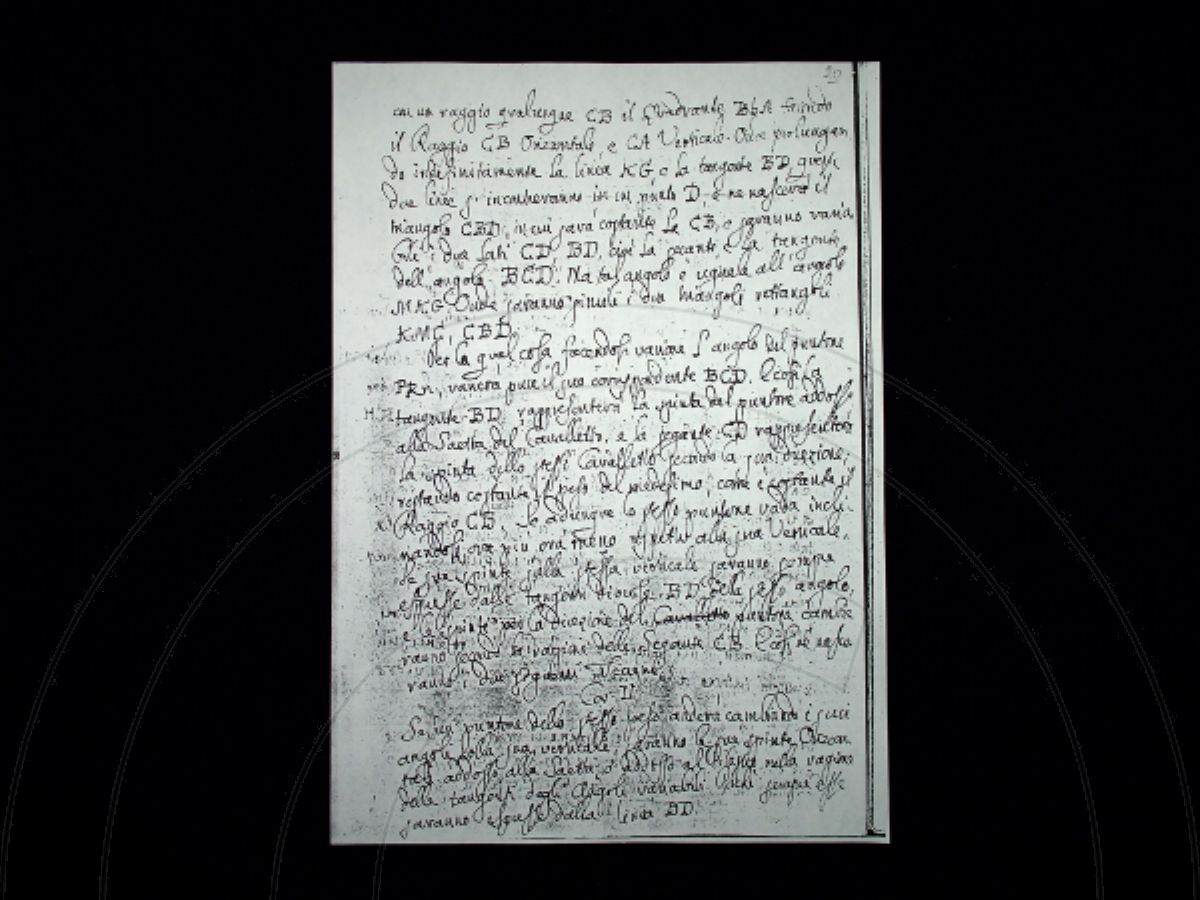 con un raggio qualunque CB il Quadrante BbA facendo
il Raggio CB Orizontale e CA Verticale. Onde prolungan
do indefinitamente la linea KG, e la tangente BD queste
due linee s'incontreranno in un punto D, e ne nascerà il
triangolo CBD, in cui sarà costante la CB, e saranno varia
bili i due lati CD, BD, cioè la secante e la tangente
dell'angolo BCD. Ma tal angolo è uguale all'angolo
MKG. Onde saranno simili i due triangoli rettangoli
KMG, CBD.
Per la qual cosa facendosi variare l'angolo del puntone
varierà pure il suo corrispondente BCD. E così la
tangente BD rappresenterà la spinta del puntone addosso
alla Saetta del Cavalletto, e la segante CD rappresenterà
la spinta dello stesso Cavalletto secondo la sua direzione,
restando costante il peso del medesimo, come è costante il
Raggio CB. Se adunque lo stesso puntone vada incli
nandosi ora più ora meno rispetto alla sua Verticale,
le sue spinte sulla stessa verticale saranno sempre
espresse dalle tangenti diverse BD dello stesso angolo,
e le spinte per la direzione del Cavalletto puntone cambie
ranno secondo la ragione della Segante CB. E così ne nasce
ranno i due seguenti Teoremi.
Se un puntone dello stesso peso anderà cambiando i suoi
angoli colla sua verticale, saranno le sue spinte Orizon
tali addosso alla Saetta, o addosso al nella ragione
delle tangenti degli Angoli variabili. sempre esse
saranno espresse dalla linea BD.